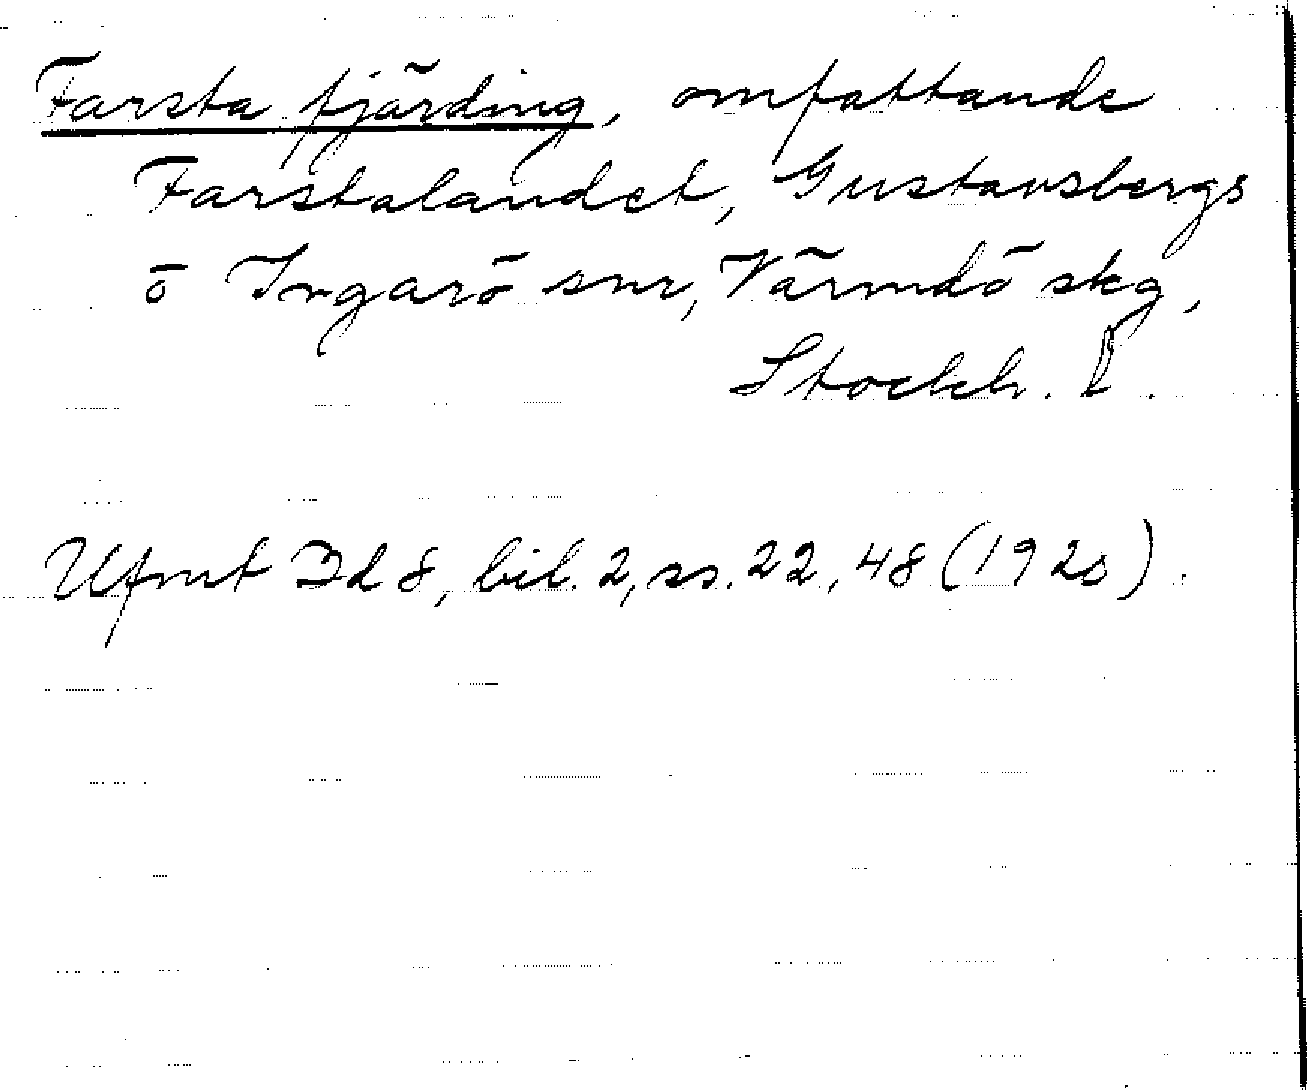 Farsta fjärding, omfattande
Farstalandet, Gustavsbergs
o Ingarö snr, Värmdö skg,
Stockh. l.
Ufmt Id 8, bil. 2, ss. 22, 48 (1920).